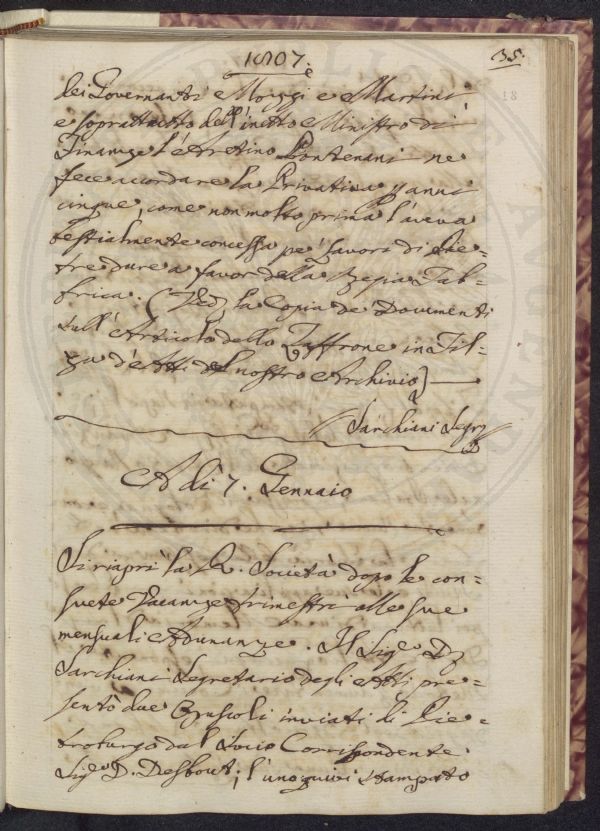 1807.
35.
dei Governanti Mozzi e Martini
e soprattutto dell'inetto Ministro di
Finanze l'Aretino Pontenani ne
fece accordare la Privativa p anni
cinque, come non molto prima l'aveva
bestialmente concessa pe' Lavori di Pie=
tre dure a favor della Regia Fab=
brica. (Ved. la Copia de' Documenti
sull'Articolo dello Zaffrone in Fil=
za d'Atti del nostro Archivio) —
Sarchiani Segr
A dì 7. Gennaio
Si riaprì la R. Società dopo le con=
suete Vacanze trimestri alle sue
mensuali Adunanze. Il Sige. D
Sarchiani Segretario degli Atti pre=
sentò due Opuscoli inviati di Pie=
troburgo dal Socio Corrispondente
Sige. D. Desbout; l'uno quivi stampato